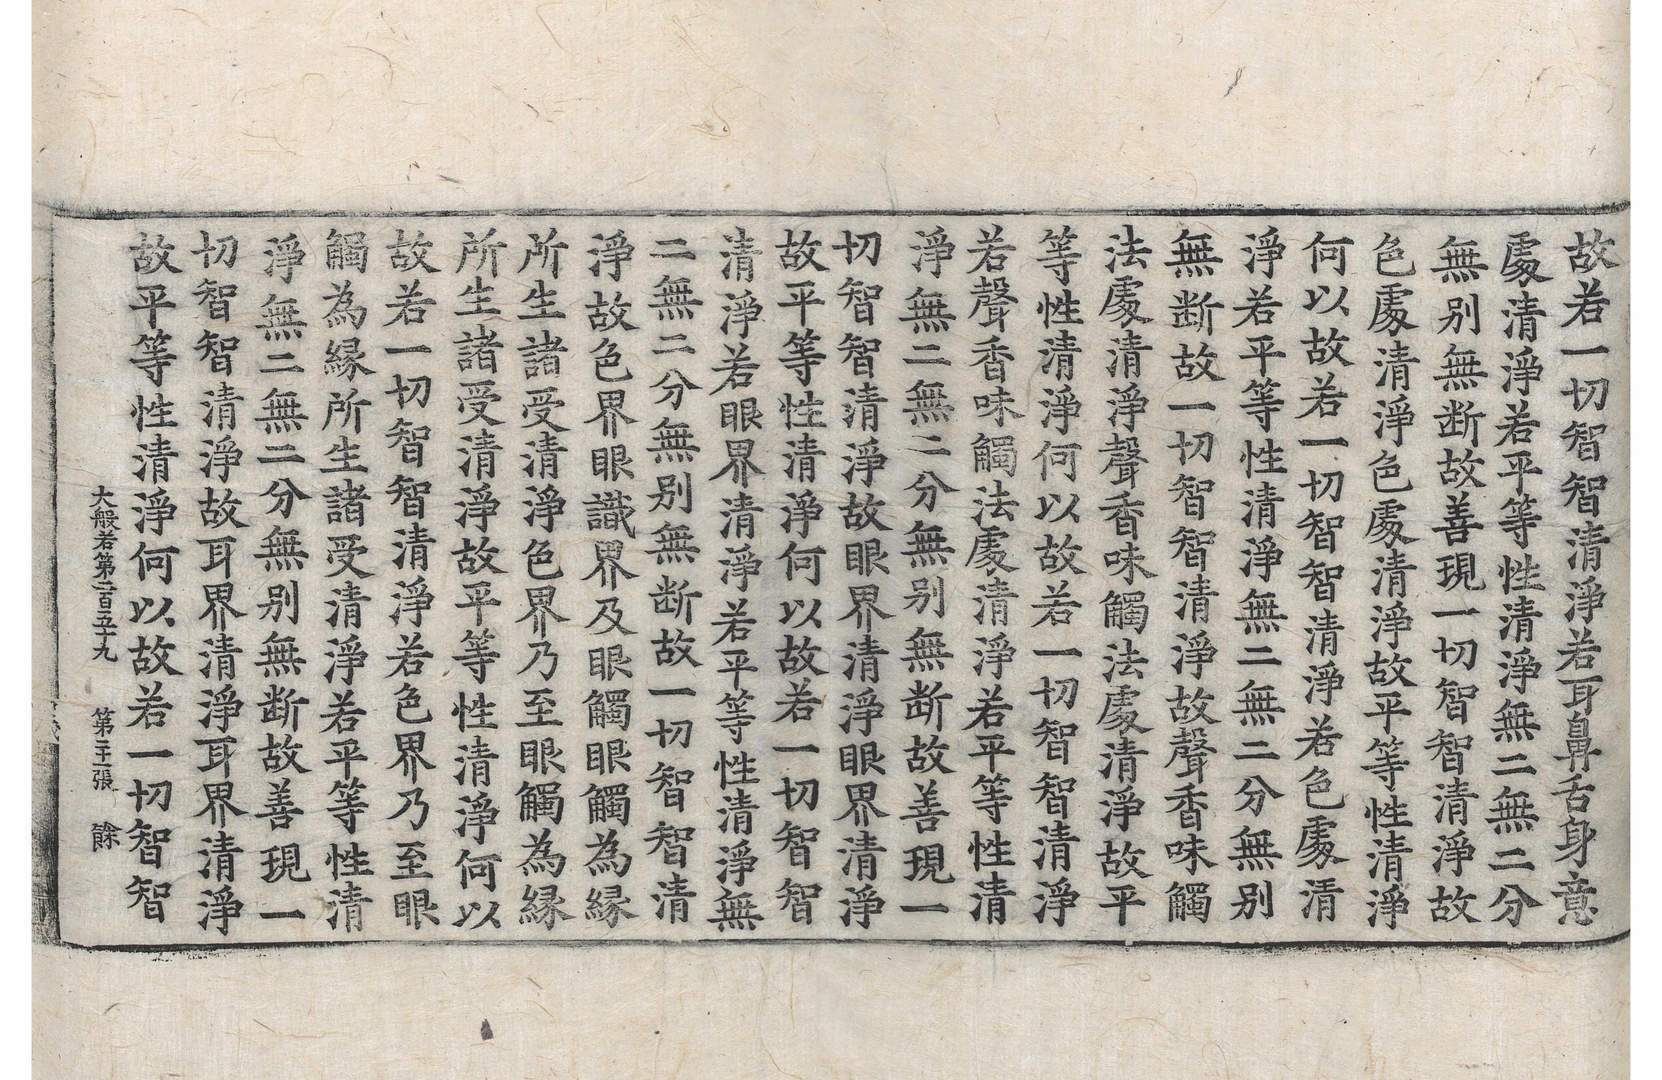 故若一切智智清淨若耳鼻舌身意
處清淨若平等性清淨無二無二分
無别無断故善現一切智智清淨故
色處清淨色處清淨故平等性清淨
何以故若一切智智清淨若色處清
淨若平等性清淨無二無二分無别
無断故一切智智清淨故聲香味觸
法處清淨聲香味觸法處清淨故平
等性清淨何以故若一切智智清淨
若聲香味觸法處清淨若平等性清
淨無二無二分無别無断故善現一
切智智清淨故眼界清淨眼界清淨
故平等性清淨何以故若一切智智
清淨若眼界清淨若平等性清淨無
二無二分無别無断故一切智智清
淨故色界眼識界及眼觸眼觸為緣
所生諸受清淨色界乃至眼觸為緣
所生諸受清淨故平等性清淨何以
故若一切智智清淨若色界乃至眼
觸為緣所生諸受清淨若平等性清
淨無二無二分無别無断故善現一
切智智清淨故耳界清淨耳界清淨
故平等性清淨何以故若一切智智
大般若第二百五十九 第二十一張 餘